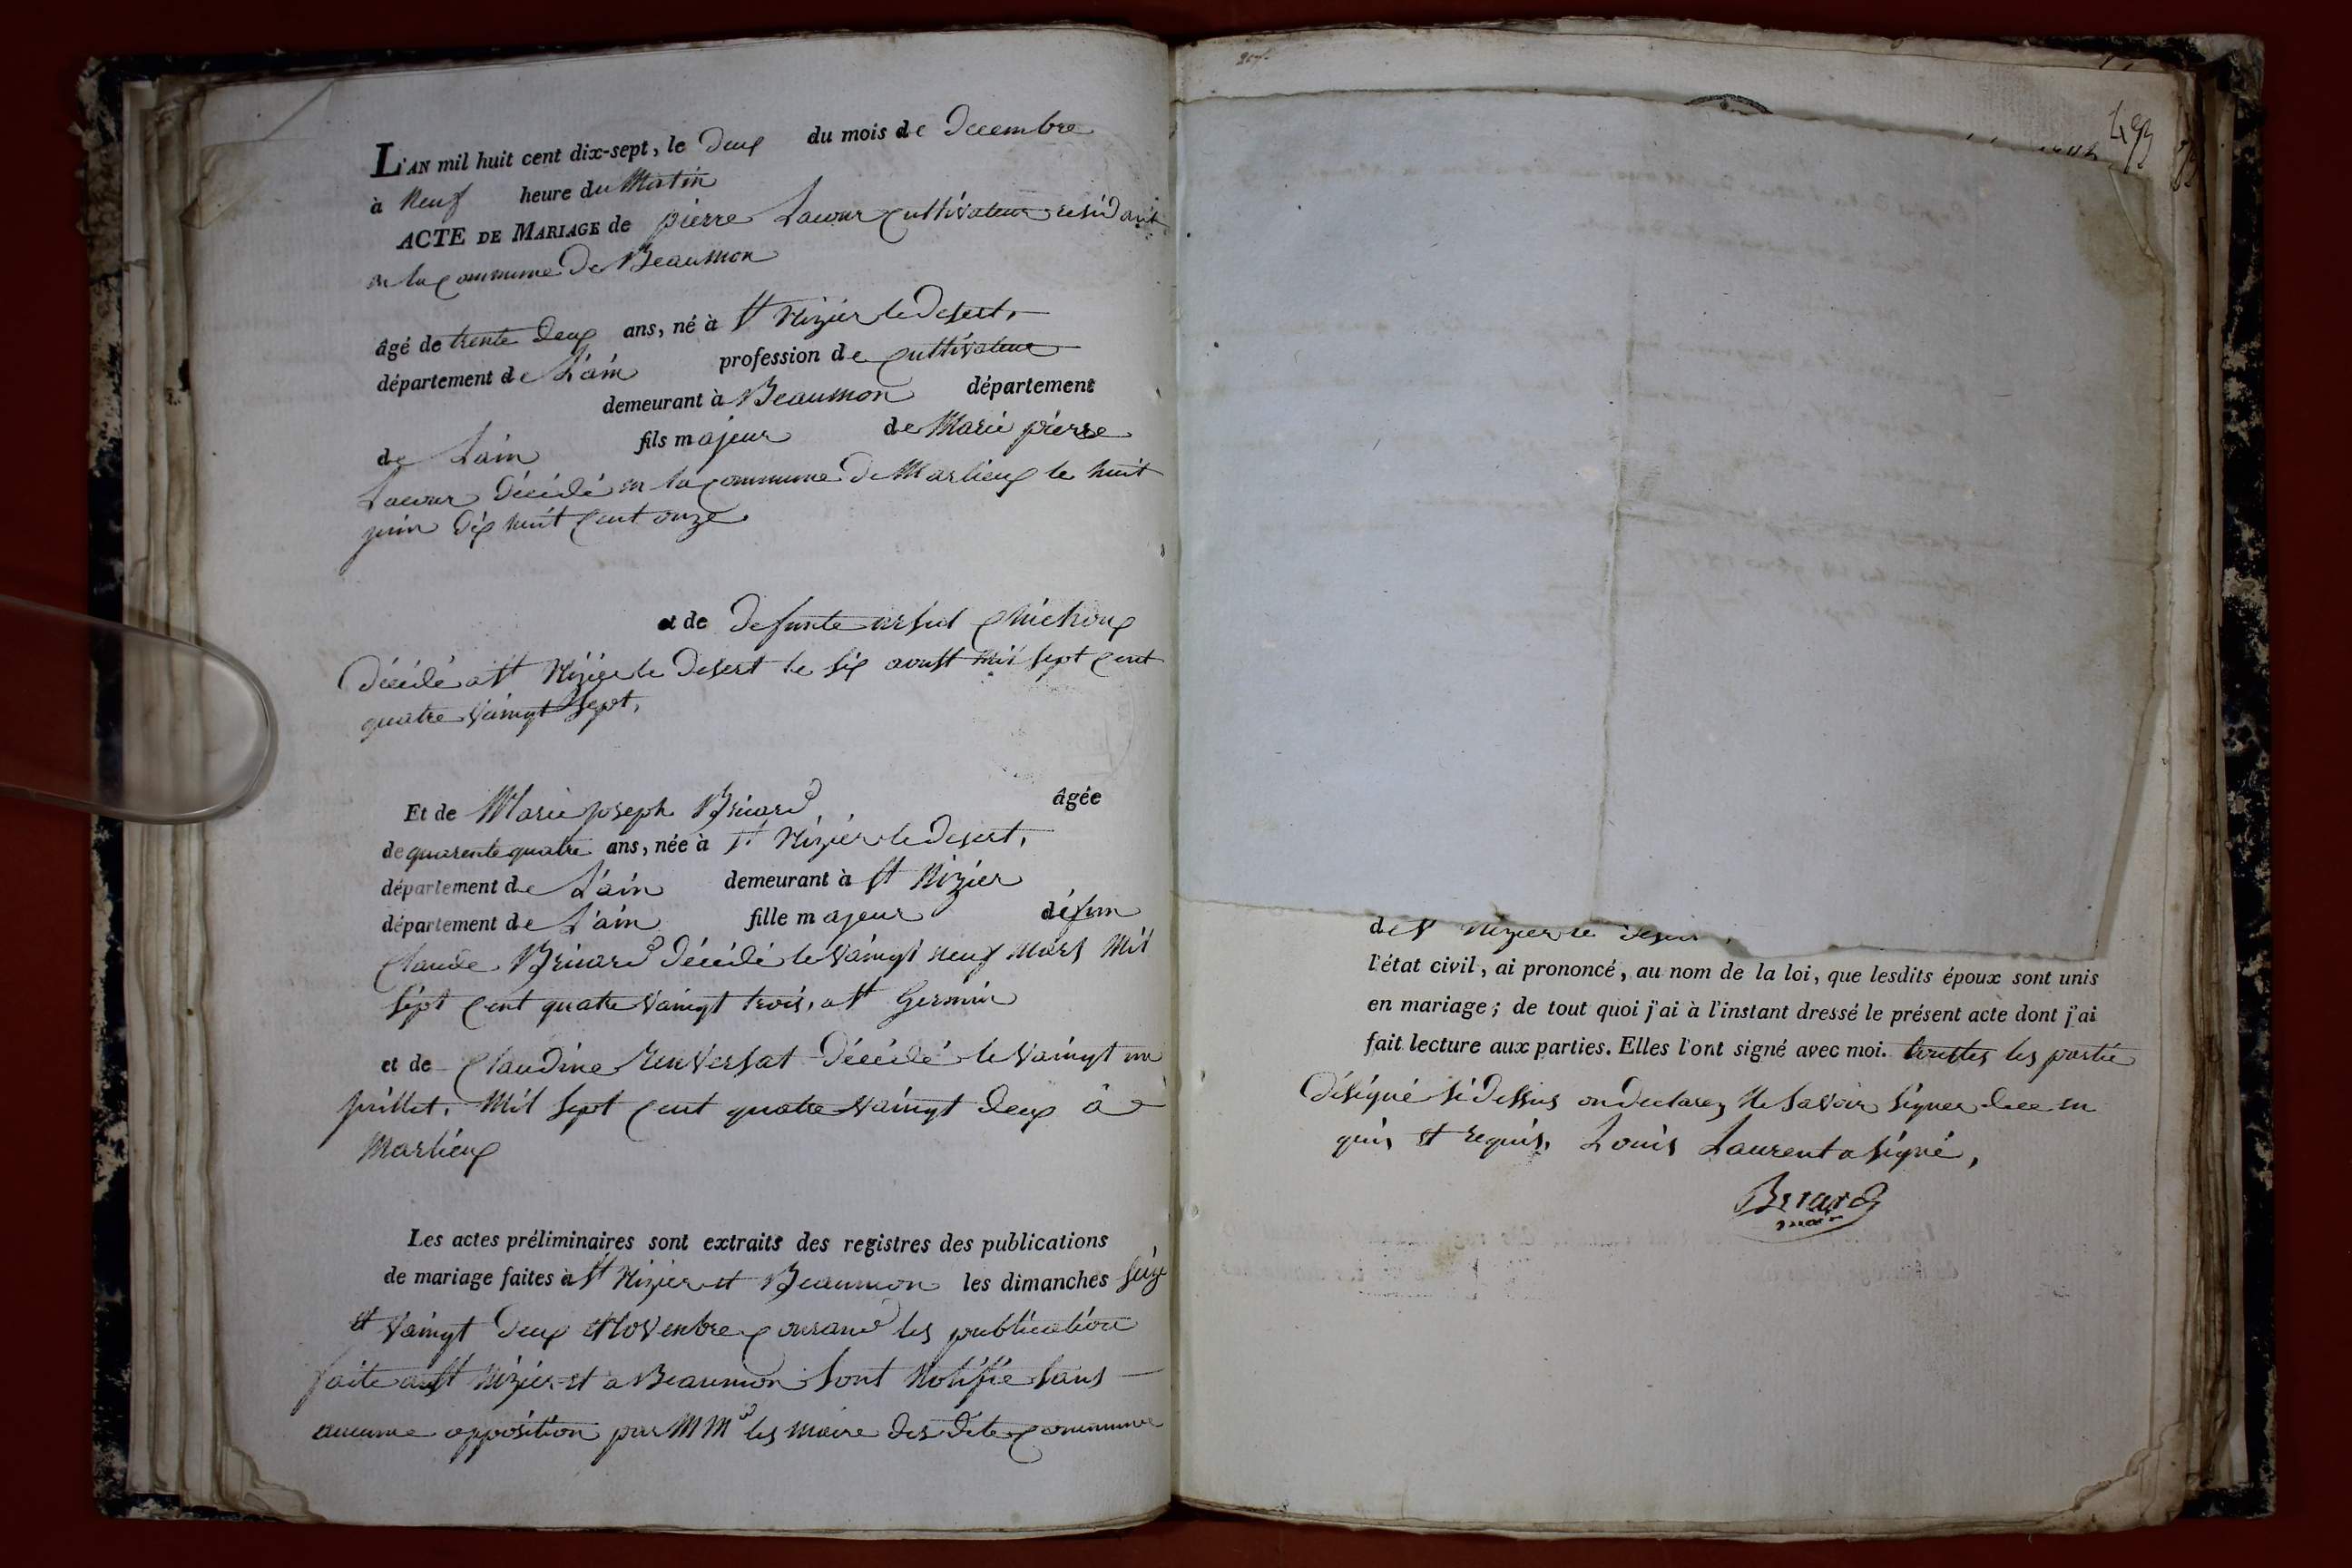 L'AN mil huit cent dix-sept, le deux du mois de decembre
à neuf heure du Matin
ACTE DE MARIAGE de pierre Lacour Cultivateur residant
en la Commune de Beaumon
âgé de trente deux ans, né à St Nizier le desert,
département de L'ain profession de Cultivateur
demeurant à Beaumon département
de Lain fils majeur de Marie pierre
Lacour décédé en la Commune de Marlieux le huit
juin dix huit Cent onze
et de defunte ursul Chichoux
décédé a St Nizier le desert le six aoust mil sept Cent
quatre vaingt sept,
Et de Marie joseph Bruard âgée
de quarente quatre ans, née à St Nizier le desert,
département de L'ain demeurant à St Nizier
département de L'ain fille majeur défun
Claude Bruard décédé le vaingt neuf mars mil
sept Cent quatre vaingt trois, a St Germin
et de Claudine Renversat décédé le vaingt un
juillet, mil sept Cent quatre vaingt deux à
Marlieux
Les actes préliminaires sont extraits des registres des publications
de mariage faites à St Nizier et Beaumon les dimanches seize
et vaingt deux Novenbre Courand les publication
faite a St Nizier et a Beaumon sont Notifié sans
aucune opposition par MMrs les maire des dite Commune
493
de St Nizier le desert,
l'état civil, ai prononcé, au nom de la loi, que lesdits époux sont unis
en mariage; de tout quoi j'ai à l'instant dressé le présent acte dont j'ai
fait lecture aux parties. Elles l'ont signé avec moi. touttes les partie
désigné si dessus on declarez Ne savoir signer dee en
quis et requis, Louis Laurent a signé,
Berard
maire